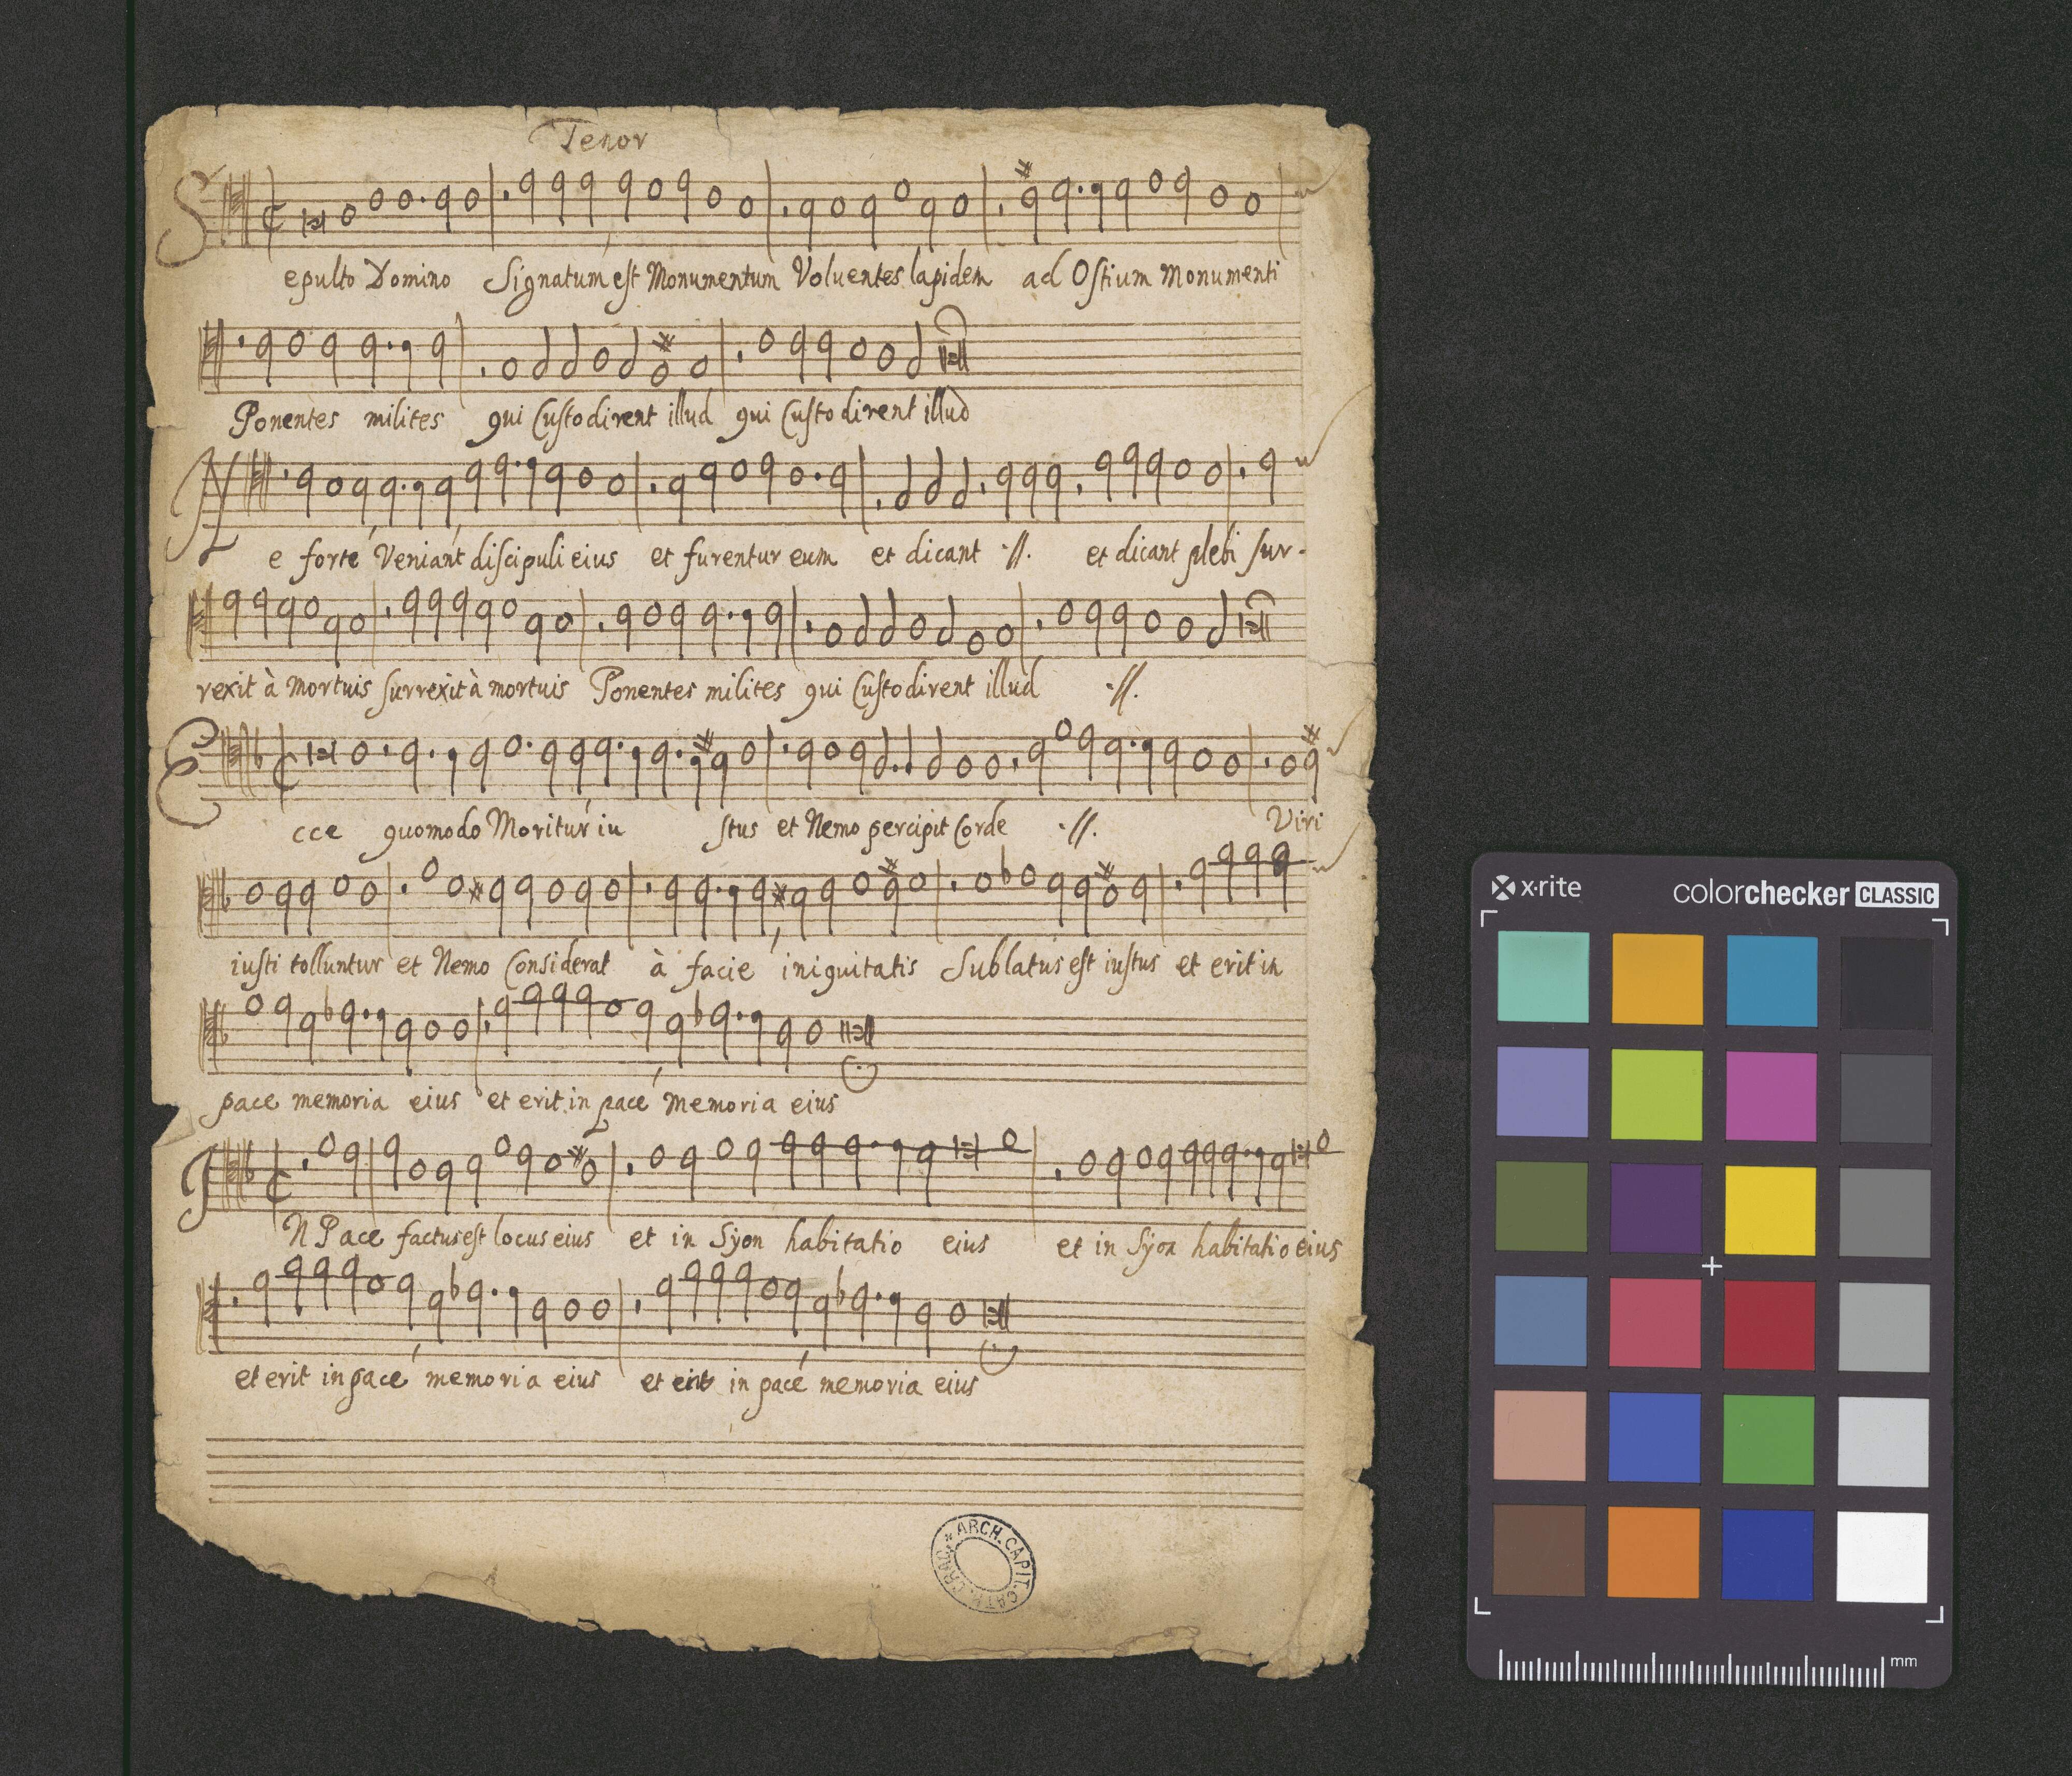 Tenor
Sepulto Domino Signatum est Monumentum Voluentes lapidem ad Ostium Monumenti
Ponentes milites qui Custodirent illud qui Custodirent illud
Ne forte Veniant discipuli eius et furentur eum et dicant ·//. et dicant plebi sur-
rexit à mortuis surrexit à mortuis Ponentes milites qui Custodirent illud ·//.
Ecce quomodo Moritur iustus et Nemo percipit Corde ·//. Viri
iusti tolluntur et Nemo Considerat à facie iniquitatis Sublatus est iustus et erit in
pace memoria eius et erit in pace memoria eius
IN Pace factus est locus eius et in Syon habitatio eius et in Syon habitatio eius
et erit in pace memoria eius et erit in pace memoria eius
* ARCH. CAPIT. CATH. CRAC.
x·rite colorchecker CLASSIC
mm